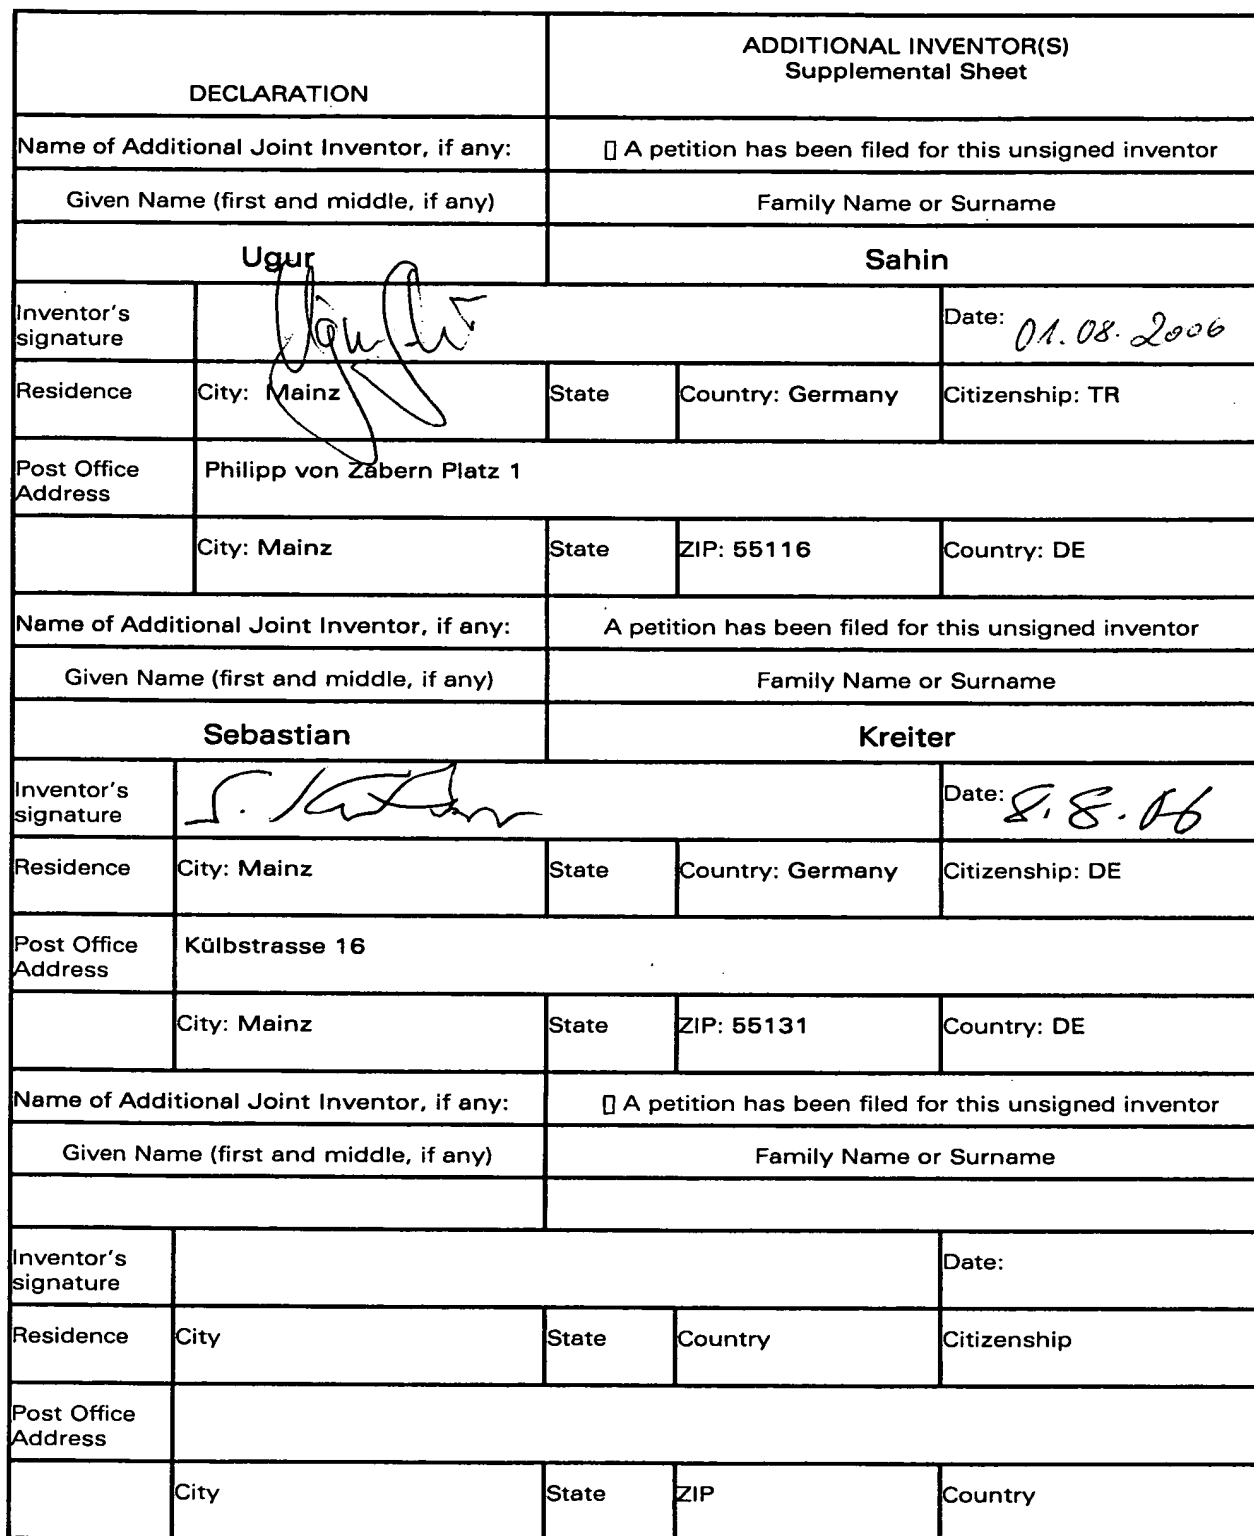 DECLARATION
ADDITIONAL INVENTOR(S)
Supplemental Sheet
Name of Additional Joint Inventor, if any:
▯ A petition has been filed for this unsigned inventor
Given Name (first and middle, if any)
Family Name or Surname
Ugur
Sahin
Inventor's
signature
Date: 01.08.2006
Residence
City: Mainz
State
Country: Germany
Citizenship: TR
Post Office
Address
Philipp von Zabern Platz 1
City: Mainz
State
ZIP: 55116
Country: DE
Name of Additional Joint Inventor, if any:
A petition has been filed for this unsigned inventor
Given Name (first and middle, if any)
Family Name or Surname
Sebastian
Kreiter
Inventor's
signature
Date: 8.8.06
Residence
City: Mainz
State
Country: Germany
Citizenship: DE
Post Office
Address
Külbstrasse 16
City: Mainz
State
ZIP: 55131
Country: DE
Name of Additional Joint Inventor, if any:
▯ A petition has been filed for this unsigned inventor
Given Name (first and middle, if any)
Family Name or Surname
Inventor's
signature
Date:
Residence
City
State
Country
Citizenship
Post Office
Address
City
State
ZIP
Country